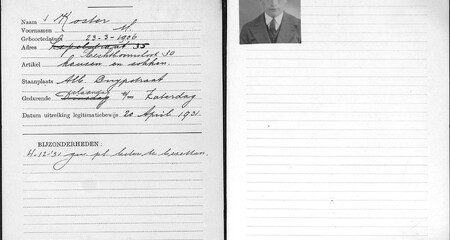 Naam Koster
Voornamen M.
Geboortedatum 23-3-1906
Adres 35
30
Artikel kousen en sokken.
Staanplaats Alb. Cuypstraat
Gedurende Dinsdag t/m Zaterdag
Datum uitreiking legitimatiebewijs 20 April 1931.
BIJZONDERHEDEN:
4-12-'31 te bezetten.